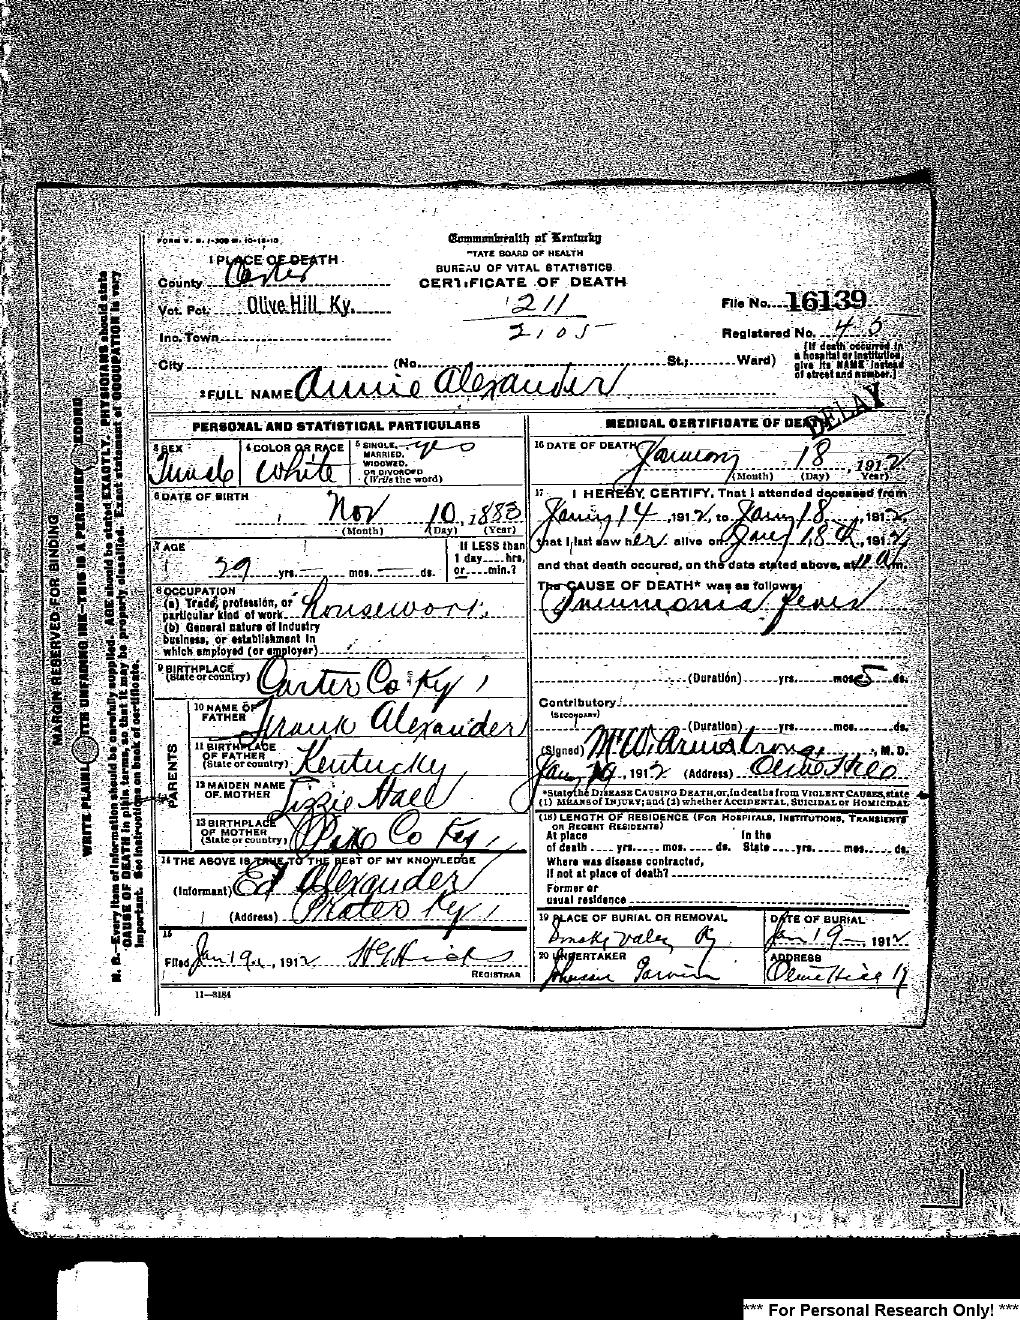 FORM V. S. 1-300 M. 10-18-10
Commonwealth of Kentucky
STATE BOARD OF HEALTH
BUREAU OF VITAL STATISTICS
CERTIFICATE OF DEATH
1 PLACE OF DEATH
County Carter
Vot. Pct. Olive Hill Ky.
Inc. Town
City (No. St.; Ward)
211
2105
File No. 16139
Registered No. 45
(If death occurred in
a hospital or institution,
give its NAME instead
of street and number.)
2 FULL NAME Annie Alexander
DELAY
PERSONAL AND STATISTICAL PARTICULARS
3 SEX
Female
4 COLOR OR RACE
White
5 SINGLE, yes
MARRIED,
WIDOWED,
OR DIVORCED
(Write the word)
6 DATE OF BIRTH
Nov 10, 1883
(Month) (Day) (Year)
7 AGE
29 yrs. — mos. — ds.
If LESS than
1 day hrs.
or min.?
8 OCCUPATION
(a) Trade, profession, or
particular kind of work housework.
(b) General nature of industry
business, or establishment in
which employed (or employer)
9 BIRTHPLACE
(State or country) Carter Co Ky
PARENTS
10 NAME OF
FATHER Frank Alexander
11 BIRTHPLACE
OF FATHER
(State or country) Kentucky
12 MAIDEN NAME
OF MOTHER Lizzie Hall
13 BIRTHPLACE
OF MOTHER
(State or country) Pike Co Ky
14 THE ABOVE IS TRUE TO THE BEST OF MY KNOWLEDGE
(Informant) Ed Alexander
(Address) Prater Ky
15
Filed Jan 19, 1912 H G Hicks
REGISTRAR
11—3184
MEDICAL CERTIFICATE OF DEATH
16 DATE OF DEATH January 18, 1912
(Month) (Day) Year)
17 I HEREBY CERTIFY, That I attended deceased from
Jany 14, 1912, to Jany 18, 1912,
that I last saw her alive on Jany 18th, 1912
and that death occurred, on the date stated above, at 11 a m.
The CAUSE OF DEATH* was as follows:
Pneumonia fever
(Duration) yrs. mos. 5 ds.
Contributory
(SECONDARY)
(Duration) yrs. mos. ds.
(Signed) M W Armstrong, M. D.
Jan 19, 1912 (Address) Olive Hill
*State the DISEASE CAUSING DEATH, or, in deaths from VIOLENT CAUSES, state
(1) MEANS of INJURY; and (2) whether ACCIDENTAL, SUICIDAL or HOMICIDAL
(18) LENGTH OF RESIDENCE (FOR HOSPITALS, INSTITUTIONS, TRANSIENTS
OR RECENT RESIDENTS)
At place In the
of death yrs. mos. ds. State yrs. mos. ds.
Where was disease contracted,
If not at place of death?
Former or
usual residence
19 PLACE OF BURIAL OR REMOVAL
Smoky Valey Ky
DATE OF BURIAL
Jan 19 1912
20 UNDERTAKER
Johnson
ADDRESS
Olive Hill Ky
MARGIN RESERVED FOR BINDING
WRITE PLAINLY WITH UNFADING INK—THIS IS A PERMANENT RECORD
N. B.—Every item of information should be carefully supplied. AGE should be stated EXACTLY. PHYSICIANS should state
CAUSE OF DEATH in plain terms, so that it may be properly classified. Exact statement of OCCUPATION is very
important. See instructions on back of certificate.
*** For Personal Research Only! ***